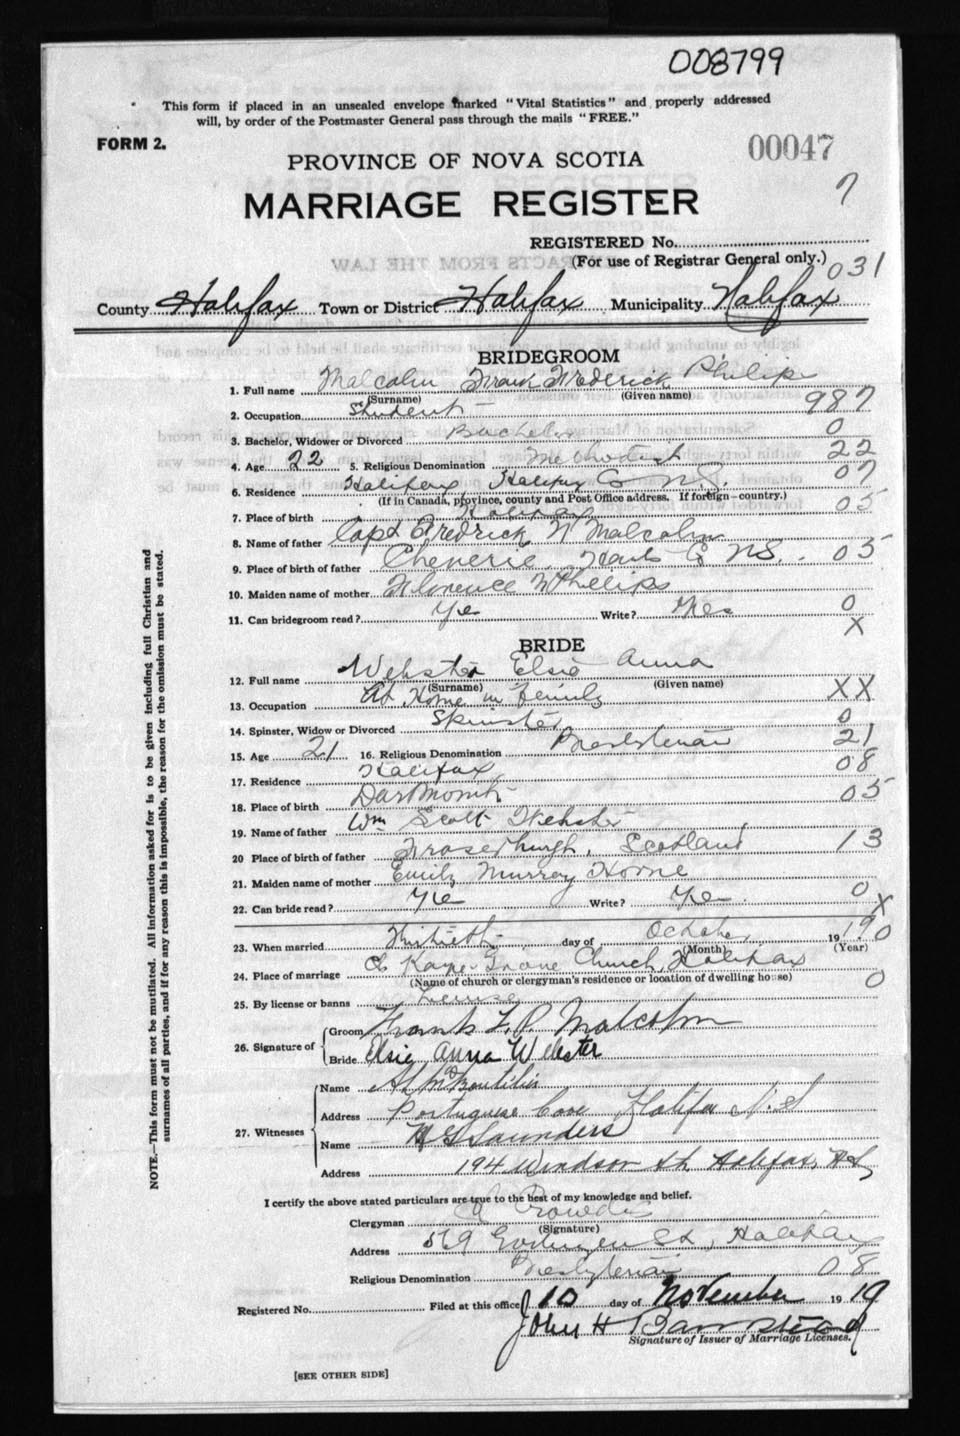 008799
This form if placed in an unsealed envelope marked "Vital Statistics" and properly addressed
will, by order of the Postmaster General pass through the mails "FREE."
FORM 2.
00047
PROVINCE OF NOVA SCOTIA
7
MARRIAGE REGISTER
REGISTERED No.
(For use of Registrar General only.) 031
County Halifax Town or District Halifax Municipality Halifax
BRIDEGROOM
1. Full name Malcolm Frank Frederick Philips
(Surname) (Given name)
2. Occupation Student 987
3. Bachelor, Widower or Divorced Bachelor 0
4. Age 22 5. Religious Denomination Methodist 22
6. Residence Halifax, Halifax Co N.S. 07
(If in Canada, province, county and Post Office address. If foreign—country.)
7. Place of birth Halifax 05
8. Name of father Capt Fredrick N Malcolm
9. Place of birth of father Cheverie Hants Co NS. 05
10. Maiden name of mother Florence Phillips
11. Can bridegroom read? Yes Write? Yes 0
X
BRIDE
12. Full name Webster Elsie Anna
(Surname) (Given name)
13. Occupation At Home in Family XX
14. Spinster, Widow or Divorced Spinster 0
15. Age 21 16. Religious Denomination Presbyterian 21
17. Residence Halifax 08
18. Place of birth Dartmouth 05
19. Name of father Wm Scott Webster
20 Place of birth of father Fraserburgh, Scotland 13
21. Maiden name of mother Emily Murray Horne
22. Can bride read? Yes Write? Yes 0
X
23. When married Thirtieth day of October 19190
(Month) (Year)
24. Place of marriage Kaye-Grove Church Halifax
(Name of church or clergyman's residence or location of dwelling house) 0
25. By license or banns License
26. Signature of Groom Frank F. P. Malcolm
Bride Elsie Anna Webster
27. Witnesses
Name
Address Portuguese Cove Halifax N.S
Name H G Saunders
Address 194 Windsor St, Halifax, N.S.
I certify the above stated particulars are true to the best of my knowledge and belief.
Clergyman
(Signature)
Address St, Halifax
Religious Denomination Presbyterian 08
Registered No. Filed at this office 10 day of November 1919
John H Barnstead
Signature of Issuer of Marriage Licenses.
[SEE OTHER SIDE]
NOTE.—This form must not be mutilated. All information asked for is to be given including full Christian and
surnames of all parties, and if for any reason this is impossible, the reason for the omission must be stated.